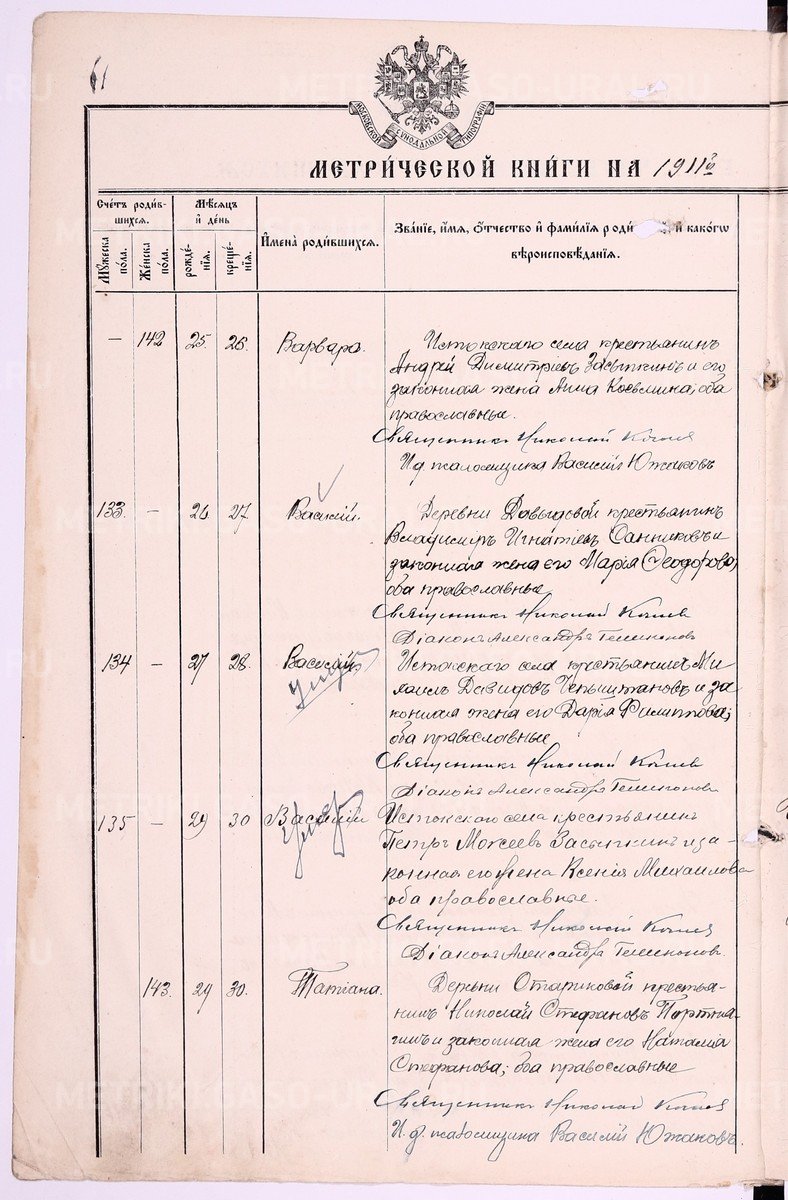 61
МОСКОВСКОЙ СѴНОДАЛЬНОЙ ТИПОГРАФІИ
МЕТРИ́ЧЕСКОЙ КНИ́ГИ НА 1911 г.
Счетъ роди́в-
шихся.
Мѣсяцъ
и день
Имена̀ роди́вшихся.
Зва́нїе, и́мя, ѻ҆́тчество и фами́лїя роди и како́гѡ
вѣроисповѣ́данїя.
Мꙋ́жеска
по́ла.
Же́нска
по́ла.
рожде́-
нїя.
креще́-
нїя.
— 142 25 26. Варвара. Истокскаго села крестьянинъ
Андрей Димитріевъ Засыпкинъ и его
законная жена Анна Косьмина, оба
православные.
Священникъ Николай
И д псаломщика Василій Южаковъ
133. — 26 27 Василій. Деревни Давыдовой крестьянинъ
Владиміръ Игнатіевъ Санниковъ и
законная жена его Марія Ѳеодорова,
оба православные
Священникъ Николай
Діаконъ Александръ
134 — 27 28. Василій Истокскаго села крестьянинъ Ми
хаилъ Давидовъ и за
конная жена его Дарія Филиппова;
оба православные
Священникъ Николай
Діаконъ Александръ
135 — 29 30 Василій Истокскаго села крестьянинъ
Петръ Моисеевъ Засыпкинъ и за-
конная его жена Ксенія Михаилова
оба православные.
Священникъ Николай
Діаконъ Александръ
143. 29 30. Татіана. Деревни крестья-
нинъ Николай Стефановъ Портня-
гинъ и законная жена его Наталія
Стефанова; оба православные
Священникъ Николай
И. д. псаломщика Василій Южаковъ.